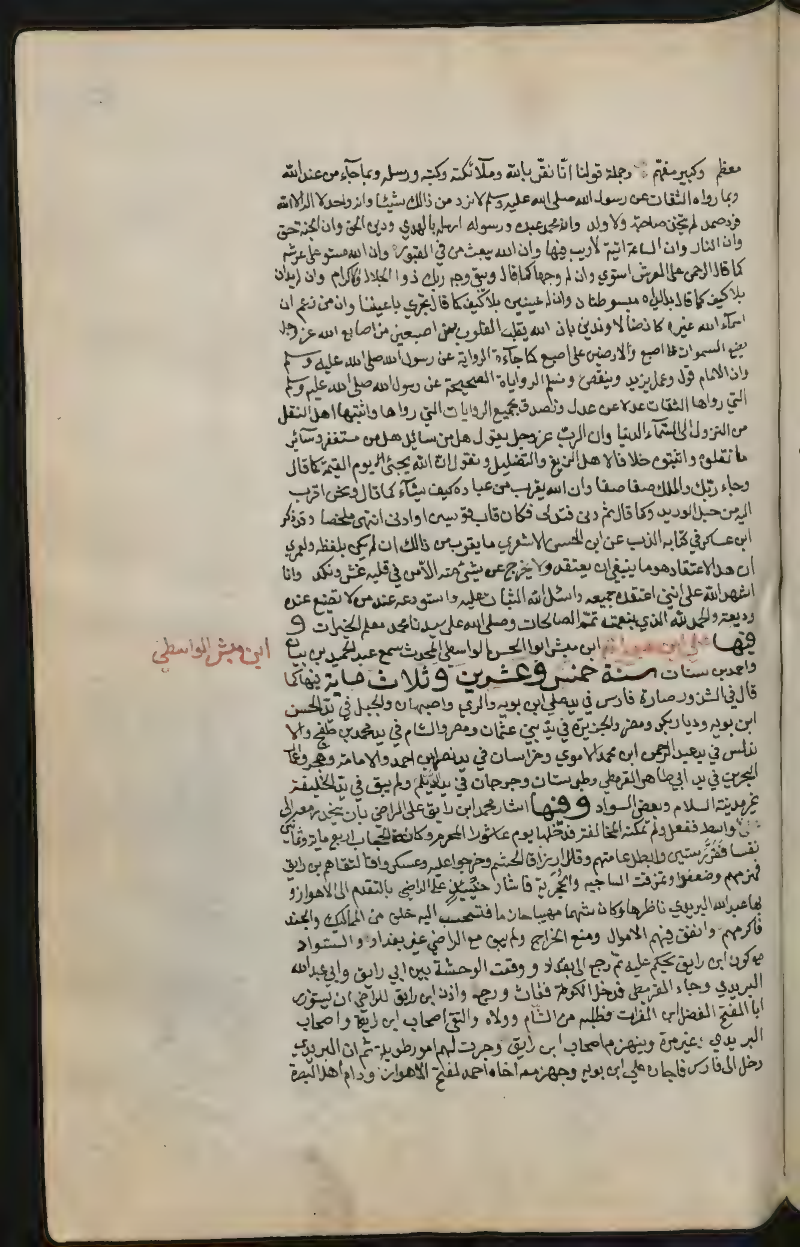 معظم وكبير مفهّم وجملة قولنا انّا نقرّ بالله وملآئكته وكتبه ورسله وبما جآء من عند الله
وبما رواه الثقات عن رسول الله صلى الله عليه وسلم لا نرد من ذالك شيئا وانه واحد لا اله الا الله
فرد صمد لم يتخذ صاحبة ولا ولد وان محمد عبده ورسوله ارسله بالهدي ودين الحق وان الجنة حق
وان النار وان الساعة اتية لا ريب فيها وان الله يبعث من في القبور وان الله مستو على عرشه
كما قال الرحمن على العرش استوي وان له وجها كما قال ويبقى وجه ربك ذوا الجلال والاكرام وان له يدان
بلا كيف كما قال بل يداه مبسوطتان وان له عينين بلا كيف كما قال تجري باعيننا وان من زعم ان
اسمآء الله غيره كان ضالا وندين بان الله يقلب القلوب بين اصبعين من اصابع الله عز وجل
يضع السموات على اصبع والارضين على اصبع كما جآءة الرواية عن رسول الله صلى الله عليه وسلم
وان الايمان قول وعمل يزيد وينقص ونسلم الرواياة الصحيحة عن رسول الله صلى الله عليه وسلم
التي رواها الثقات عدلا عن عدل ونصدق بجميع الروايات التي رواها واثبتها اهل النقل
من النزول الى السمآء الدنيا وان الرب عز وجل يقول هل من سائل هل من مستغفر وسآئر
ما نقلوه واثبتوه خلافا لاهل الزيغ والتضليل ونقول ان الله يجئ يوم القيمة كما قال
وجاء ربك والملك صفا صفا وان الله يقرب من عباده كيف يشآء كما قال ونحن اقرب
اليه من حبل الوريد وكما قال ثم دنى فتدلى فكان قاب قوسين او ادنى انتهى ملخصا وقد ذكر
ابن عساكر في كتابه الذب عن ابي الحسن الاشعري ما يقرب من ذالك ان لم يكن بلفظه ولعمري
ان هذا الاعتقاد هو ما ينبغي ان يعتقد ولا يخرج عن شيئ منه الا من في قلبه غش ونكد وانا
اشهد الله على انني اعتقده جميعه واسئل الله الثبات عليه واستودعه عند من لا تضيع عنده
وديعة والحمد لله الذي بنعمته تتم الصالحات وصلى الله على سيدنا محمد معلم الخيرات و
فيها علي ابن ابن مبشر ابوا الحسن الواسطي المحدث سمع عبد الحميد بن بيان
ابن مبشر الواسطي
واحمد بن سنان سنة خمس وعشرين وثلاث ماية فيها كما
قال في الشذور صارة فارس في يد علي ابن بويه والري واصبهان والجبل في يد الحسن
ابن بويه وديار بكر ومضر والجزيرة في يد بني عثمان ومصر والشام في يد محمد بن طغج والا
ندلس في يد عبد الرحمن ابن محمد الاموي وخراسان في يد نصر بن احمد واليمامة وهجر واعمال
البحرين في يد ابي طاهر القرمطي وطبرستان وجرجان في يد الديلم ولم يبق في يد الخليفة
غير مدينة السلام وبعض السواد وفيها اشار محمد ابن رايق على الراضي بان ينحدر معه الى
واسط ففعل ولم تمكنه المخالفة فدخلها يوم عاشورا المحرم وكانت الحجاب اربع ماية وثمانين
نفسا فقرر ستين وابطل عامتهم وقلل ارزاق الحشم وخرجوا عليه وعسكروا فالتقاهم بن رايق
فهزمهم وضعفوا وتمزقت الساجيه والحجرية فاشار حينئذ على الراضي بالتقدم الى الاهواز و
بها عبد الله البريدي ناظرها وكان شهما مهيبا حازما فتسحب اليه خلق من المماليك والجند
فاكرمهم وانفق فيهم الاموال ومنع الخراج ولم يبق مع الراضي غير بغداد والسواد
مع كون ابن رايق يحكم عليه ثم رجع الى بغداد ووقعت الوحشة بين ابي رايق وابي عبد الله
البريدي وجاء القرمطي فدخل الكوفة فعاث ورجع واذن ابن رايق للراضي ان يستوزر
ابا الفتح الفضل ابن الفرات فطلبه من الشام وولاه والتقى اصحاب ابن رايق واصحاب
البريدي غير مرة وينهزم اصحاب ابن رايق وجرت لهم امور طويلة ثم ان البريدي
دخل الى فارس فاجاره علي ابن بويه وجهز معه اخاه احمد لفتح الاهواز ودام اهل البصرة